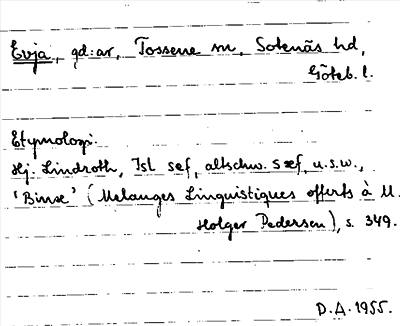 Evja, gd:ar, Tossene sn, Sotenäs hd,
Göteb. l.
Etymologi:
Hj. Lindroth, Isl sef, altschw. sæf, u.s.w.,
'Binse' (Melanges Linguistiques offerts à M.
Holger Pedersen), s. 349.
D.A. 1955.